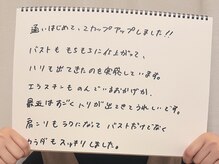 通いはじめて、2カップアップしました!!
バストももちもちに仕上がって、
ハリも出てきたのを実感しています。
エラスチンものんでいるおかげか、
最近はすごくハリが出てきてうれしいです。
肩こりもラクになってバストだけでなく
カラダもスッキリしました。